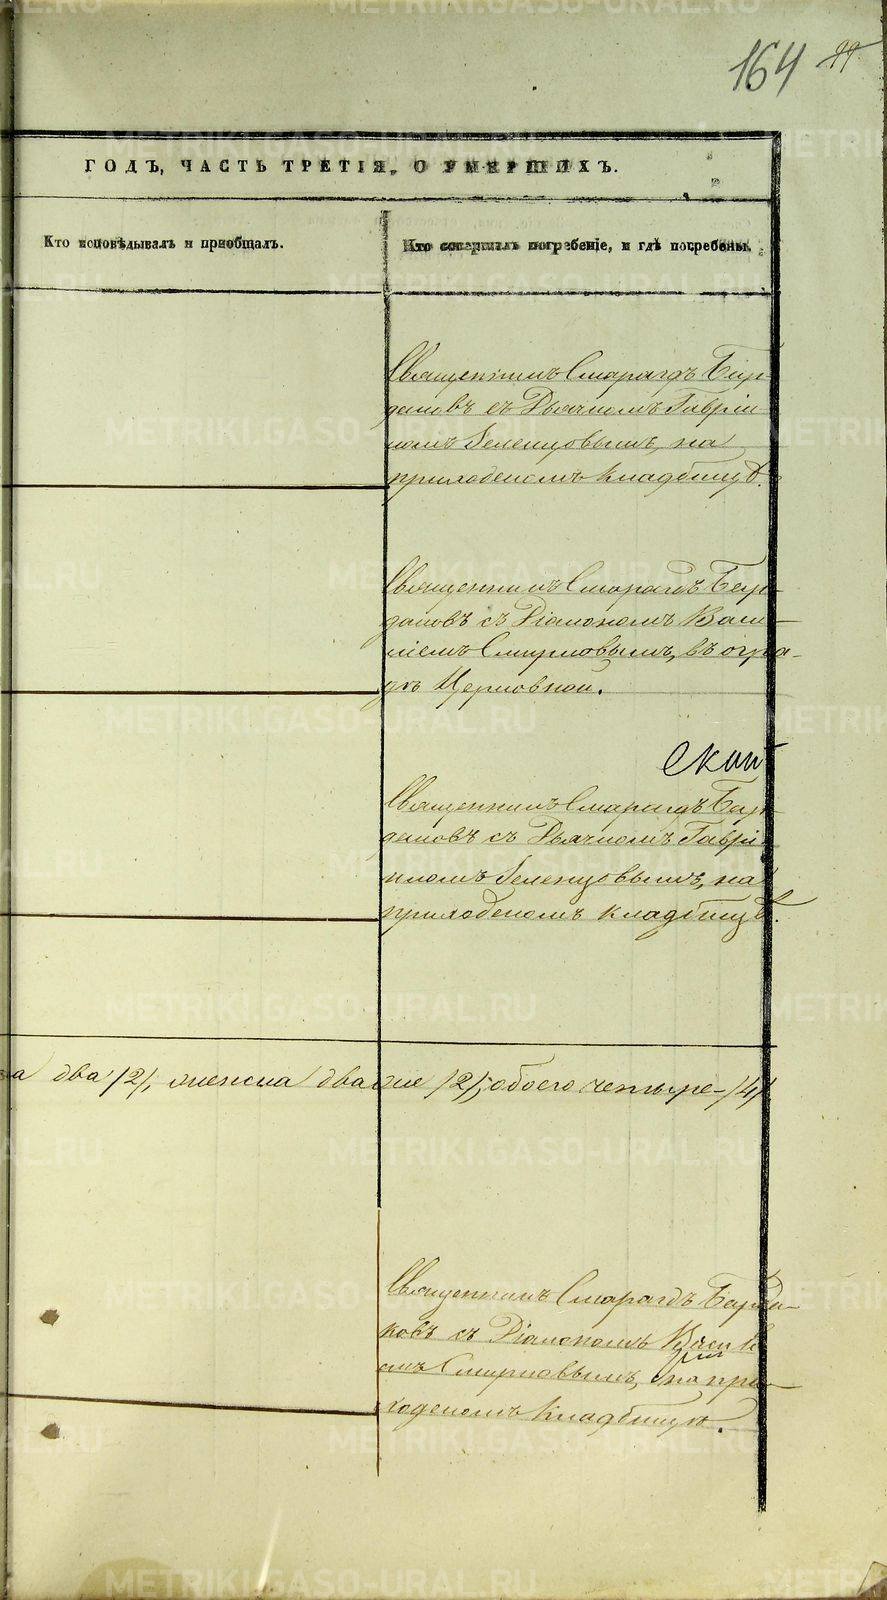 164 99
ГОДЪ, ЧАСТЬ ТРЕТІЯ, О УМЕРШИХЪ.
Кто исповѣдывалъ и пріобщалъ.
Кто совершалъ погребеніе, и гдѣ погребены.
Священникъ Смарагдъ
с Дьячкомъ Гавріи
ломъ Зеленцовымъ, на
приходскомъ кладбищѣ.
Священникъ Смарагдъ
съ Діакономъ Васи-
ліемъ Смирновымъ, въ огра-
дѣ Церковной.
Священникъ Смарагдъ
съ Дьячкомъ Гаврі-
иломъ Зеленцовымъ, на
приходскомъ кладбищѣ.
а два /2/, женска двое /2/, обоего четыре /4/
Священникъ Смарагдъ
ковъ съ Діакономъ Василі
емъ Смирновымъ, на при-
ходскомъ кладбищѣ.
METRIKI.GASO-URAL.RU